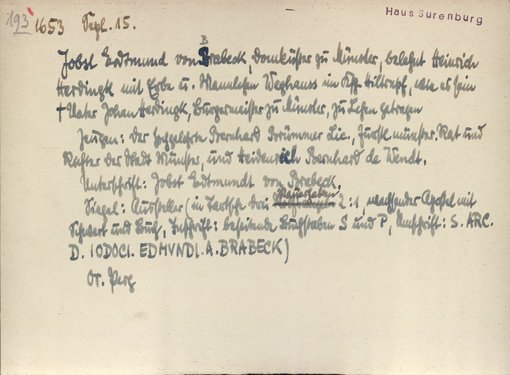 Haus Surenburg
193
1653 Sept. 15.
Jobst Edtmund von Brabeck, Domküster zu Münster, belehnt Heinrich
Herdingk mit Erbe u. Mannlehen Weghaus im Ksp. Hiltrup, wie es sein
† Vater Johan Herdingk, Bürgermeister zu Münster, zu Lehen getragen
Zeugen: Der Hochgelehrte Bernhard Brümmer Lic., Fürstl. münster. Rat und
Richter der Stadt Münster, und Heidenreich Bernhard de Wendt.
Unterschrift: Jobst Edtmundt von Brabeck.
Siegel: Aussteller (in Kartusche drei 2:1, wachsender Apostel mit
Schwert und Buch, Inschrift: beseitende Buchstaben S und P, Umschrift: S. ARC.
D. IODOCI. EDMVNDI. A. BRABECK)
Or. Perg